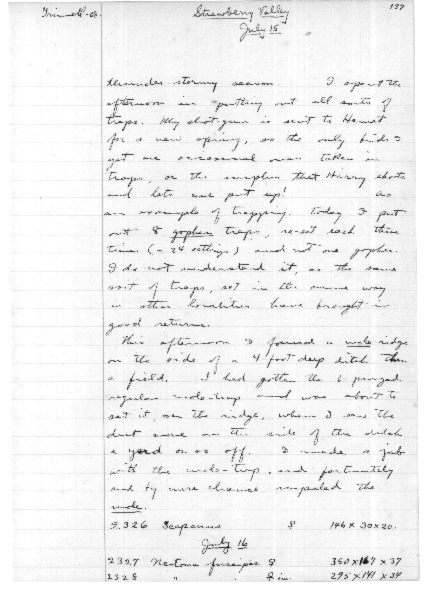 Grinnell-06. Strawberry Valley 137
July 15
thunder stormy season. I spent the
afternoon in putting out all sorts of
traps. My shot-gun is sent to Hemet
for a new spring, so the only birds I
get are occasional ones taken in
traps, or the surplus that Harry shoots
and lets me put up! As
an example of trapping, today I put
out 8 gopher traps, re-set each three
times (= 24 settings) and not one gopher.
I do not understand it, as the same
sort of traps, set in the same way
in other localities have brought in
good returns.
This afternoon I found a mole ridge
on the side of a 4 foot deep ditch thru
a field. I had gotten the 6 pronged
regular mole-trap and was about to
set it over the ridge, when I saw the
dirt move on the side of the ditch
a yard or so off. I made a jab
with the mole-trap, and fortunately
and by mere chance impaled the
mole.
2326 Scapanus ♀ 146 x 30 x 20.
July 16
2327 Neotoma fuscipes ♀ 350 x 167 x 37
2328 " ♀ im. 295 x 141 x 34